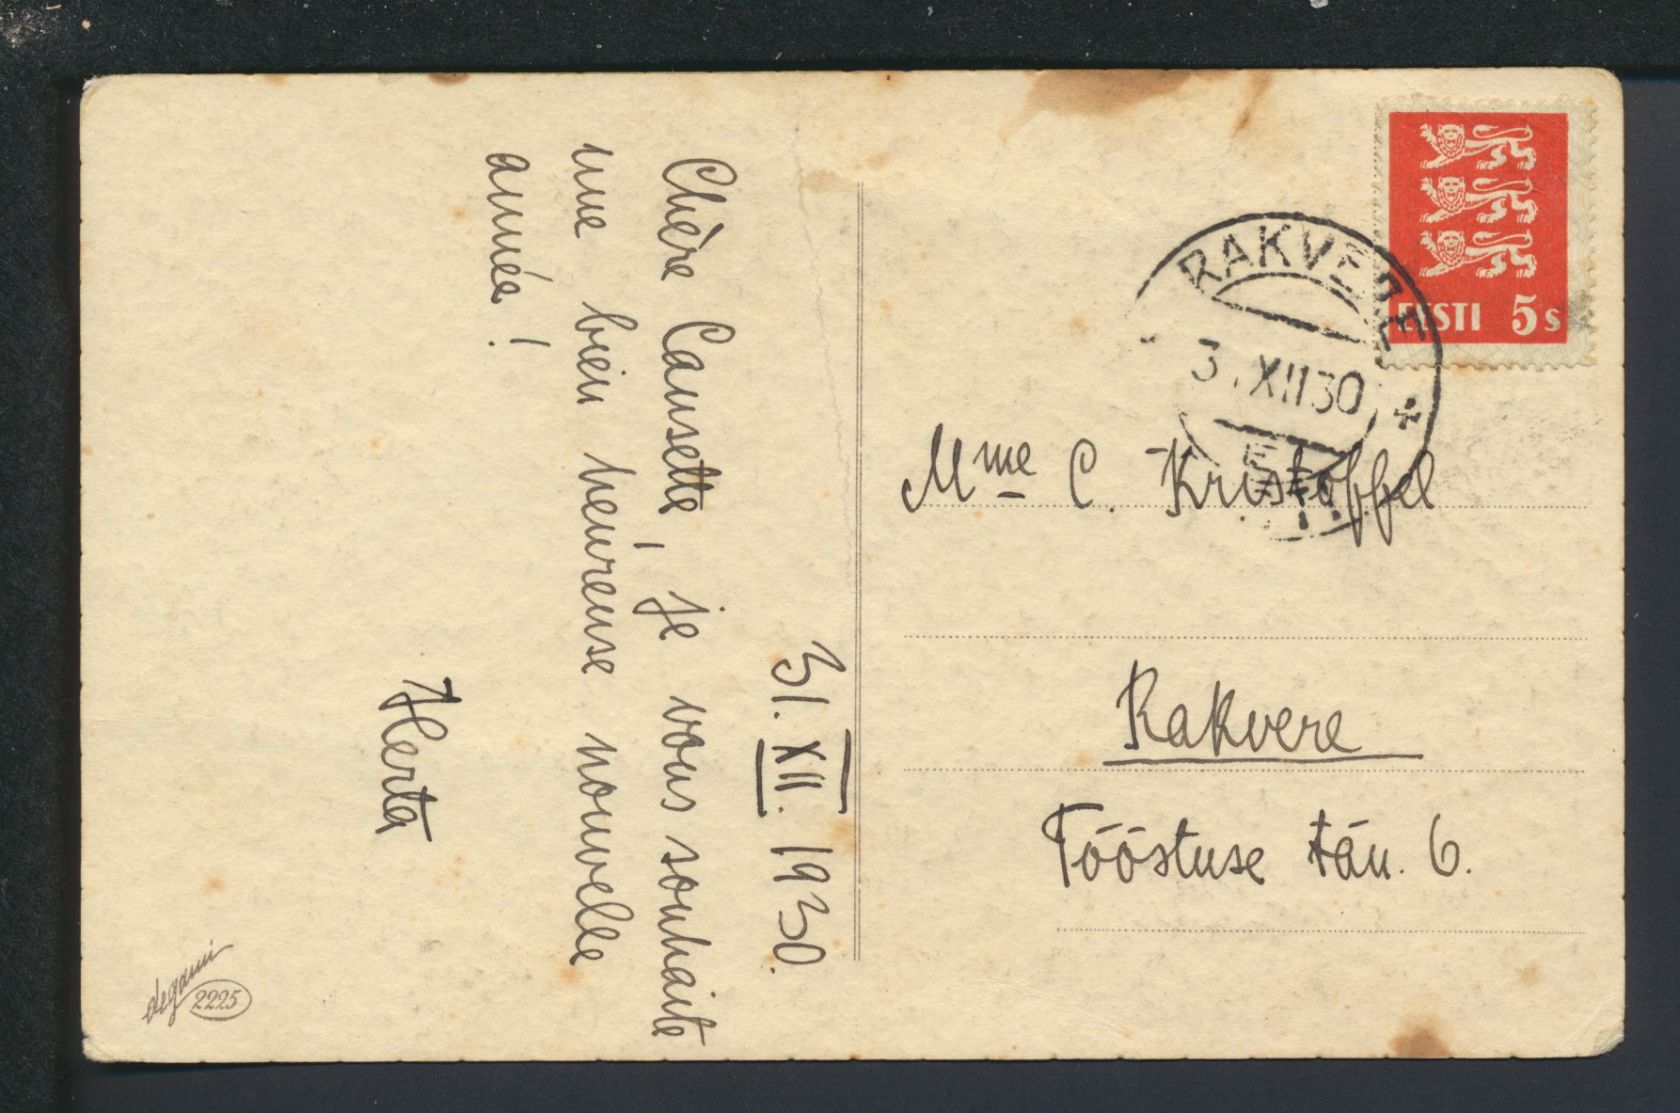 31. XII. 1930.
Chère Causette, je vous souhaite
une bien heureuse nouvelle
année!
Herta
degami
2225
EESTI 5 s
RAKVERE
3 . XII 30
Mme C. Kristoffel
Rakvere
Tööstuse tän. 6.